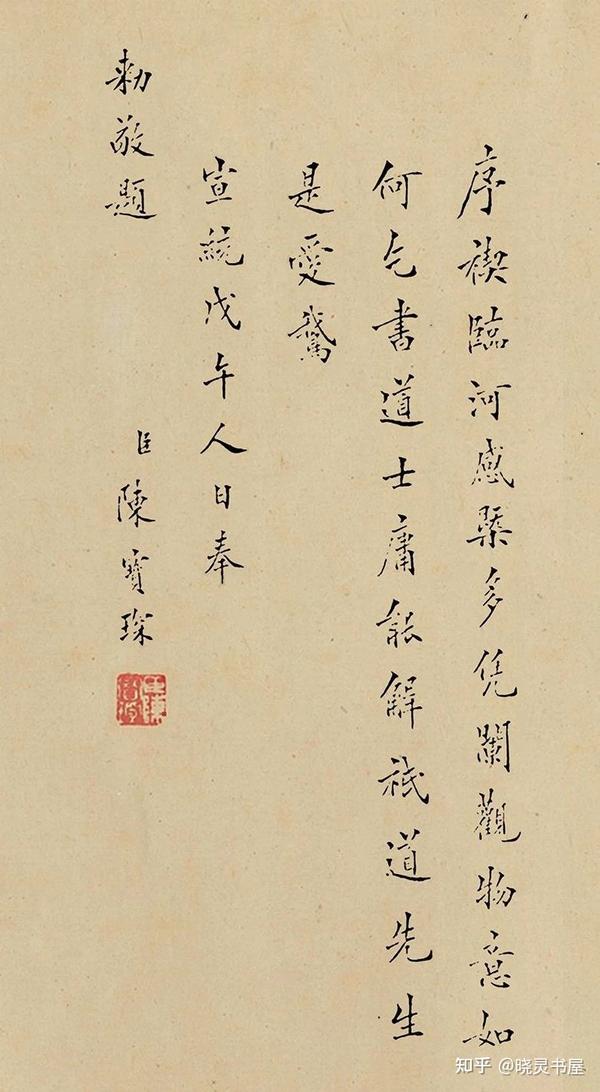 序禊臨河感槩多凭闌觀物意如
何乞書道士庸能解祇道先生
是愛鵞
宣統戊午人日奉
勅敬題
臣陳寶琛
知乎 @晓灵书屋